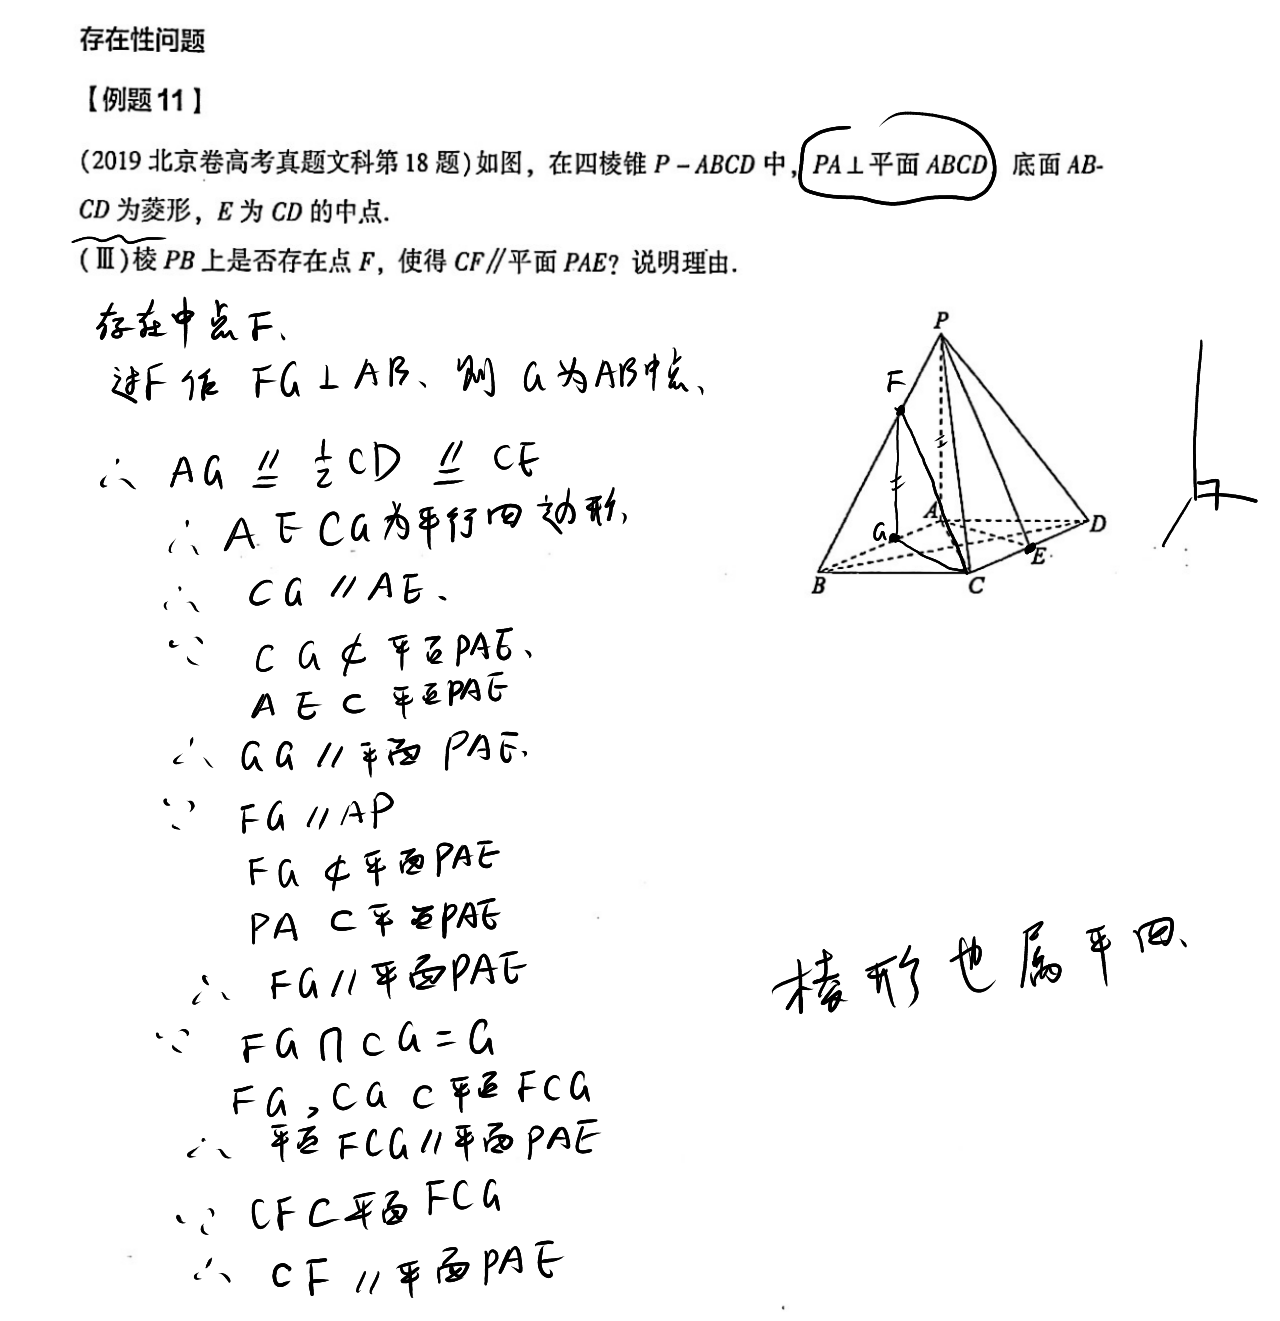 存在性问题
【例题11】
(2019北京卷高考真题文科第18题)如图，在四棱锥P－ABCD中，PA⊥平面ABCD，底面AB-
CD为菱形，E为CD的中点.
(Ⅲ)棱PB上是否存在点F，使得CF∥平面PAE？说明理由.
存在中点F、
过F作 FG⊥AB、则 G为AB中点、
∴ AG ∥= 1/2 CD ∥= CE
∴ AECG为平行四边形,
∴ CG∥AE、
∵ CG⊄平面PAE、
AE⊂平面PAE
∴ GG∥平面PAE.
∵ FG∥AP
FG⊄平面PAE
PA⊂平面PAE
∴ FG∥平面PAE
∵ FG∩CG=G
FG,CG⊂平面FCG
∴ 平面FCG∥平面PAE
∵ CF⊂平面FCG
∴ CF∥平面PAE
P
F
A
D
G
E
B
C
棱形也属平四、